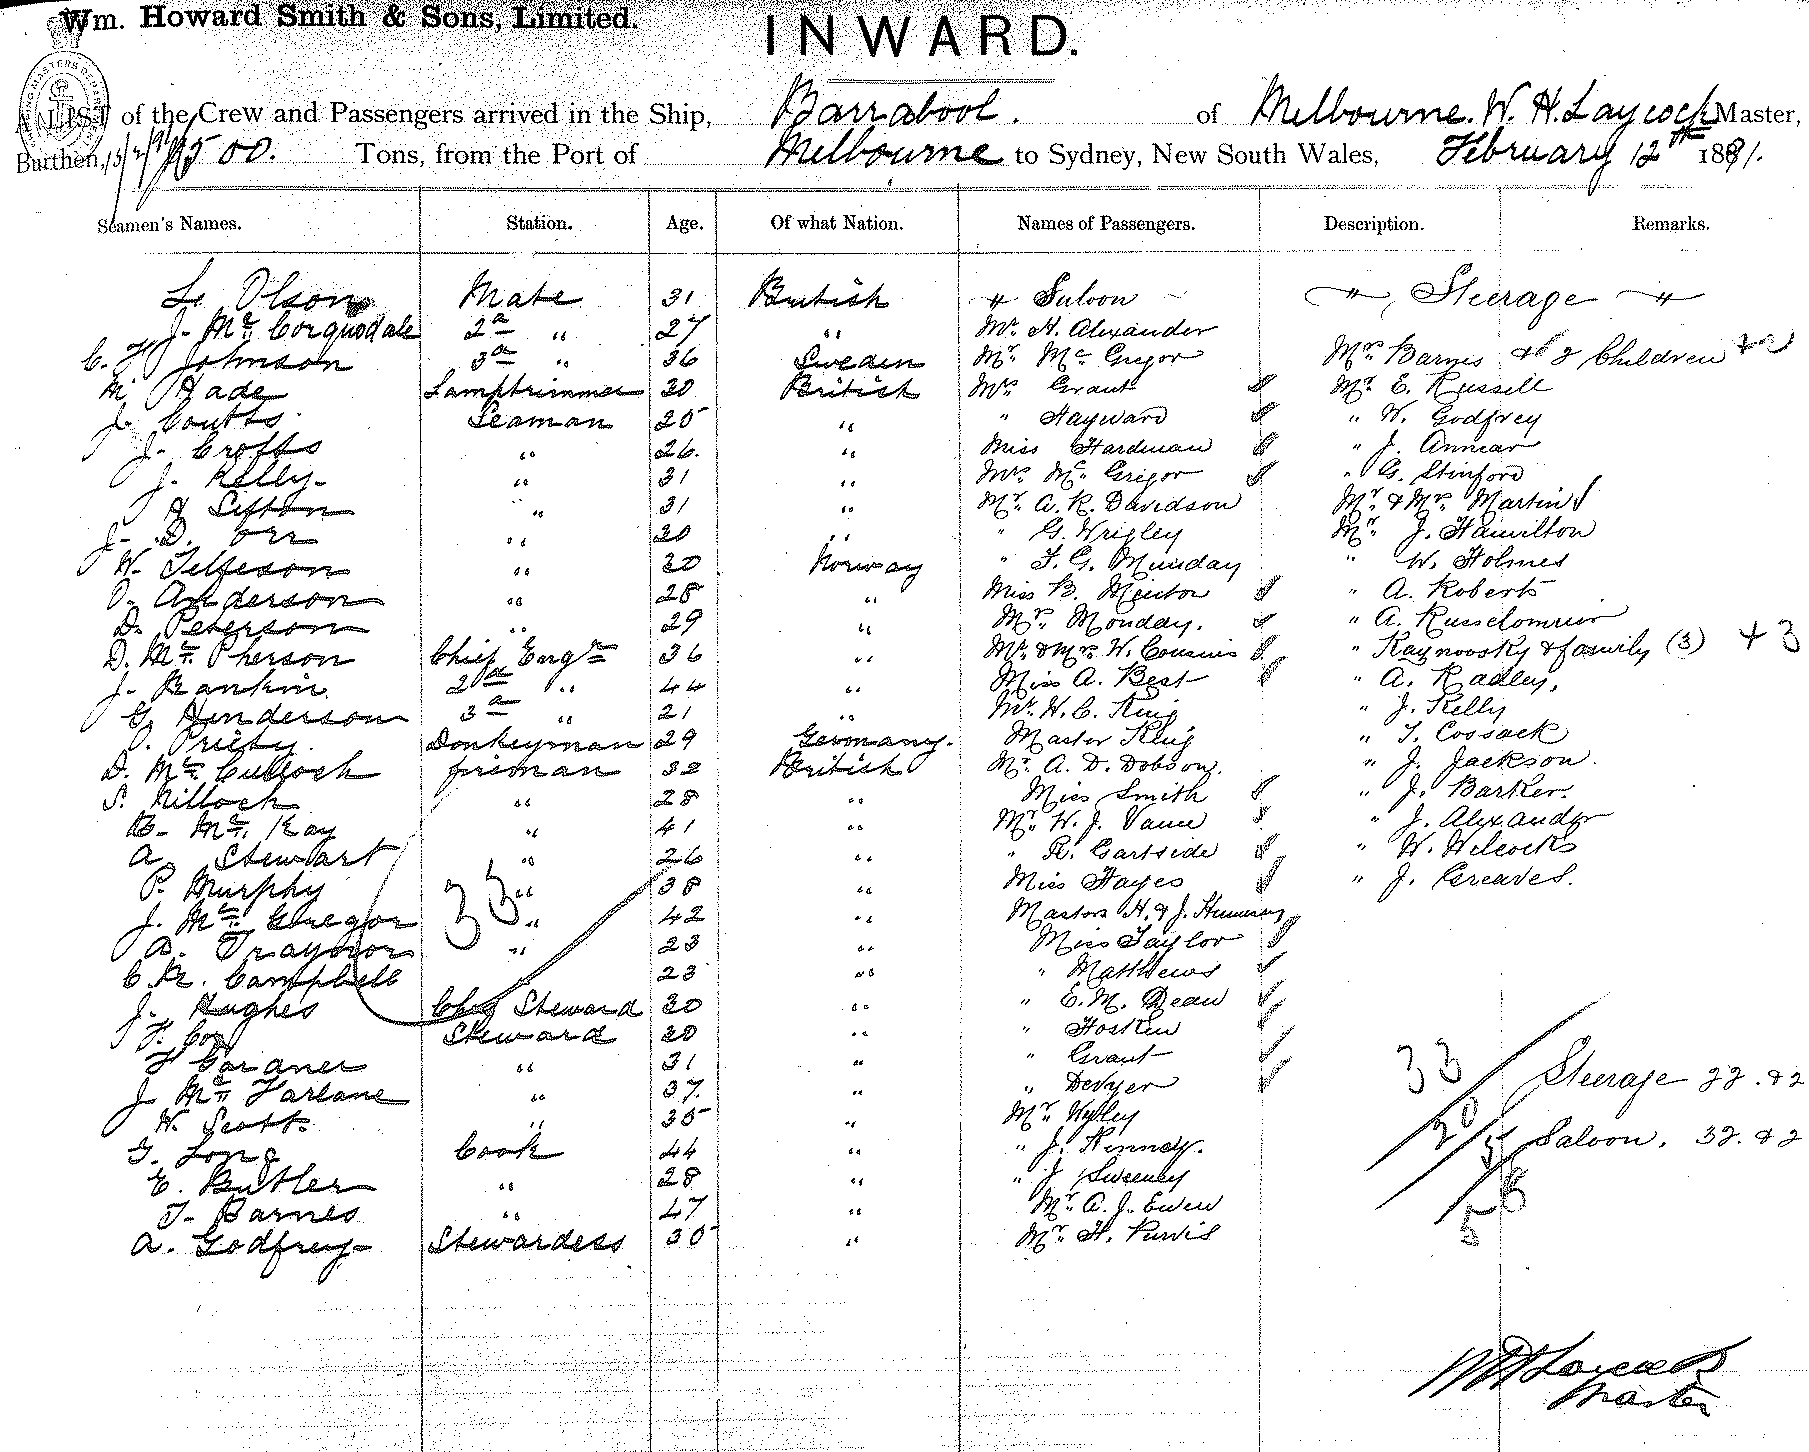 Wm. Howard Smith & Sons, Limited.
INWARD.
A LIST of the Crew and Passengers arrived in the Ship, Barrabool. of Melbourne. W. H. Laycock Master,
Burthen, 1500. Tons, from the Port of Melbourne to Sydney, New South Wales, February 12th 1891.
Seamen's Names. Station. Age. Of what Nation. Names of Passengers. Description. Remarks.
L. Olson Mate 31 British " Saloon " Steerage "
J. Mc Corquodale 2d " 27 " Mr. H. Alexander
C. F. Johnson 3d " 36 Sweden Mr. Mc Gregor Mrs Barnes & 2 Children + 2
M Hade Lamptrimmer 30 British Mrs Grant Mr E. Russell
J. Coutts Seaman 25 " " Hayward " W. Godfrey
J. Crofts " 26. " Miss Hardman " J. Annear
J. Kelly " 31 " Mrs Mc Grigor " G. Stinford
Sifton " 31 " Mr. A. R. Davidson Mr & Mrs Martin
J. D. Orr " 20 " " G. Wrigley Mr. J. Hamilton
W. " 20 Norway " F. G. Munday " W. Holmes
Anderson " 28 " Miss B. " A. Roberts
D. Peterson " 29 " Mrs Monday. " A.
D. Mc Pherson Chief Engr 36 " Mr. & Mrs. W. Cousins " & family (3) + 3
J. Rankin 2d " 44 " Miss A. Best " A. Radley,
G. Henderson 3d " 21 " Mr. H. C. King " J. Kelly
Donkeyman 29 Germany. Master King " T. Cossack
D. Mc Culloch fireman 32 British Mr. A. D. Dobson. " J. Jackson.
S. Killoch " 28 " Miss Smith " J. Barker.
B. Mc Kay " 41 " Mr. W. J. Vance " J. Alexander
A Stewart " 26 " " R. Gartside " W. Wilcocks
P. Murphy " 38 " Miss Hayes " J. Greaves.
J. Mc Gregor " 42 " Masters H. & J.
33
Traynor " 23 " Miss Taylor
C. R. Campbell 23 " " Matthews
J. Hughes Chf Steward 30 " " E. M. Dean
F. Cox Steward 20 " " Hosken
F Gardner " 31 " " Grant
J Mc Farlane " 37. " " Devyer
W. Scott. " 35 " Mr. Wylley
G. Long Cook 44 " " J. Kennedy.
E. Butler " 28 " " J Sweeney
T. Barnes " 47 " Mr. A. J. Ewen
A. Godfrey Stewardess 35 " Mr. H. Purvis
33 Steerage 22. & 2
Saloon. 32. & 2
W H Laycock
Master